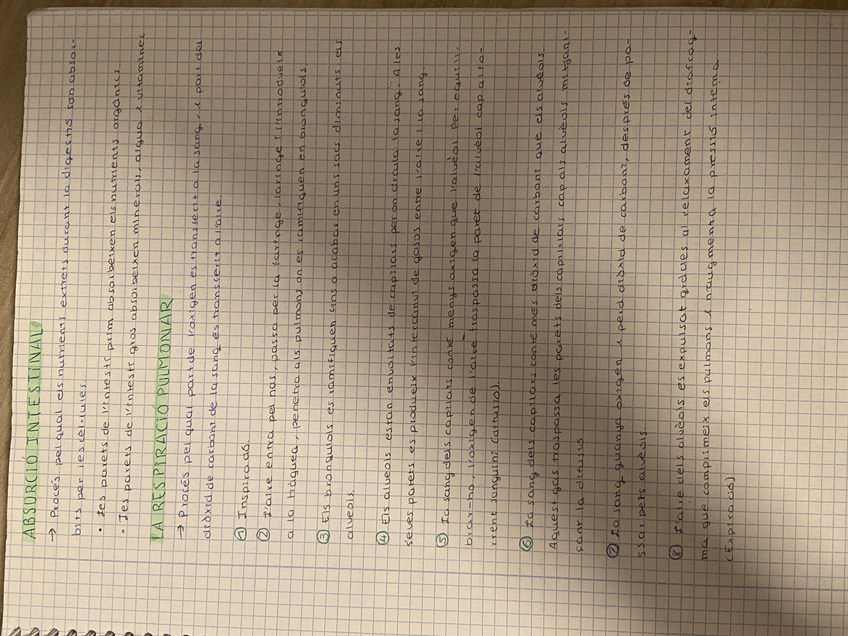 ABSORCIÓ INTESTINAL
→ Procés pel qual els nutrients extrets durant la digestió son absor-
bits per les cèl·lules.
• Les parets de l'intestí prim absorbeixen els nutrients orgànics.
• Les parets de l'intestí gros absorbeixen minerals, aigua i vitamines
LA RESPIRACIÓ PULMONAR
→ Procés pel qual part de l'oxigen es transferit a la sang, i part del
diòxid de carboni de la sang és transferit a l'aire.
① Inspiració.
② L'aire entra pel nas, passa per la faringe, laringe i s'introdueix
a la tràquea, penetra als pulmons on es ramifiquen en bronquiols.
③ Els bronquiols es ramifiquen fins a acabar en uns sacs diminuts, els
alveols.
④ Els alveols estan envoltats de capil·lars per on circula la sang. A les
seves parets es produeix l'intercanvi de gasos entre l'aire i la sang.
⑤ La sang dels capilars conté menys oxigen que l'alvèol. Per equili-
brar-ho, l'oxigen de l'aire traspassa la paret de l'alvèol cap al to-
rrent sanguini (difusió).
⑥ La sang dels capilars conté més diòxid de carboni que els alvèols.
Aquest gas traspassa les parets dels capilars cap als alvèols mitjançant
la difusió
⑦ La sang guanya oxigen i perd diòxid de carboni, després de pa-
ssar pels alvèols.
⑧ L'aire dels alvèols es expulsat gràcies al relaxament del diafrag-
ma que comprimeix els pulmons i n'augmenta la pressió interna
(Expiració)